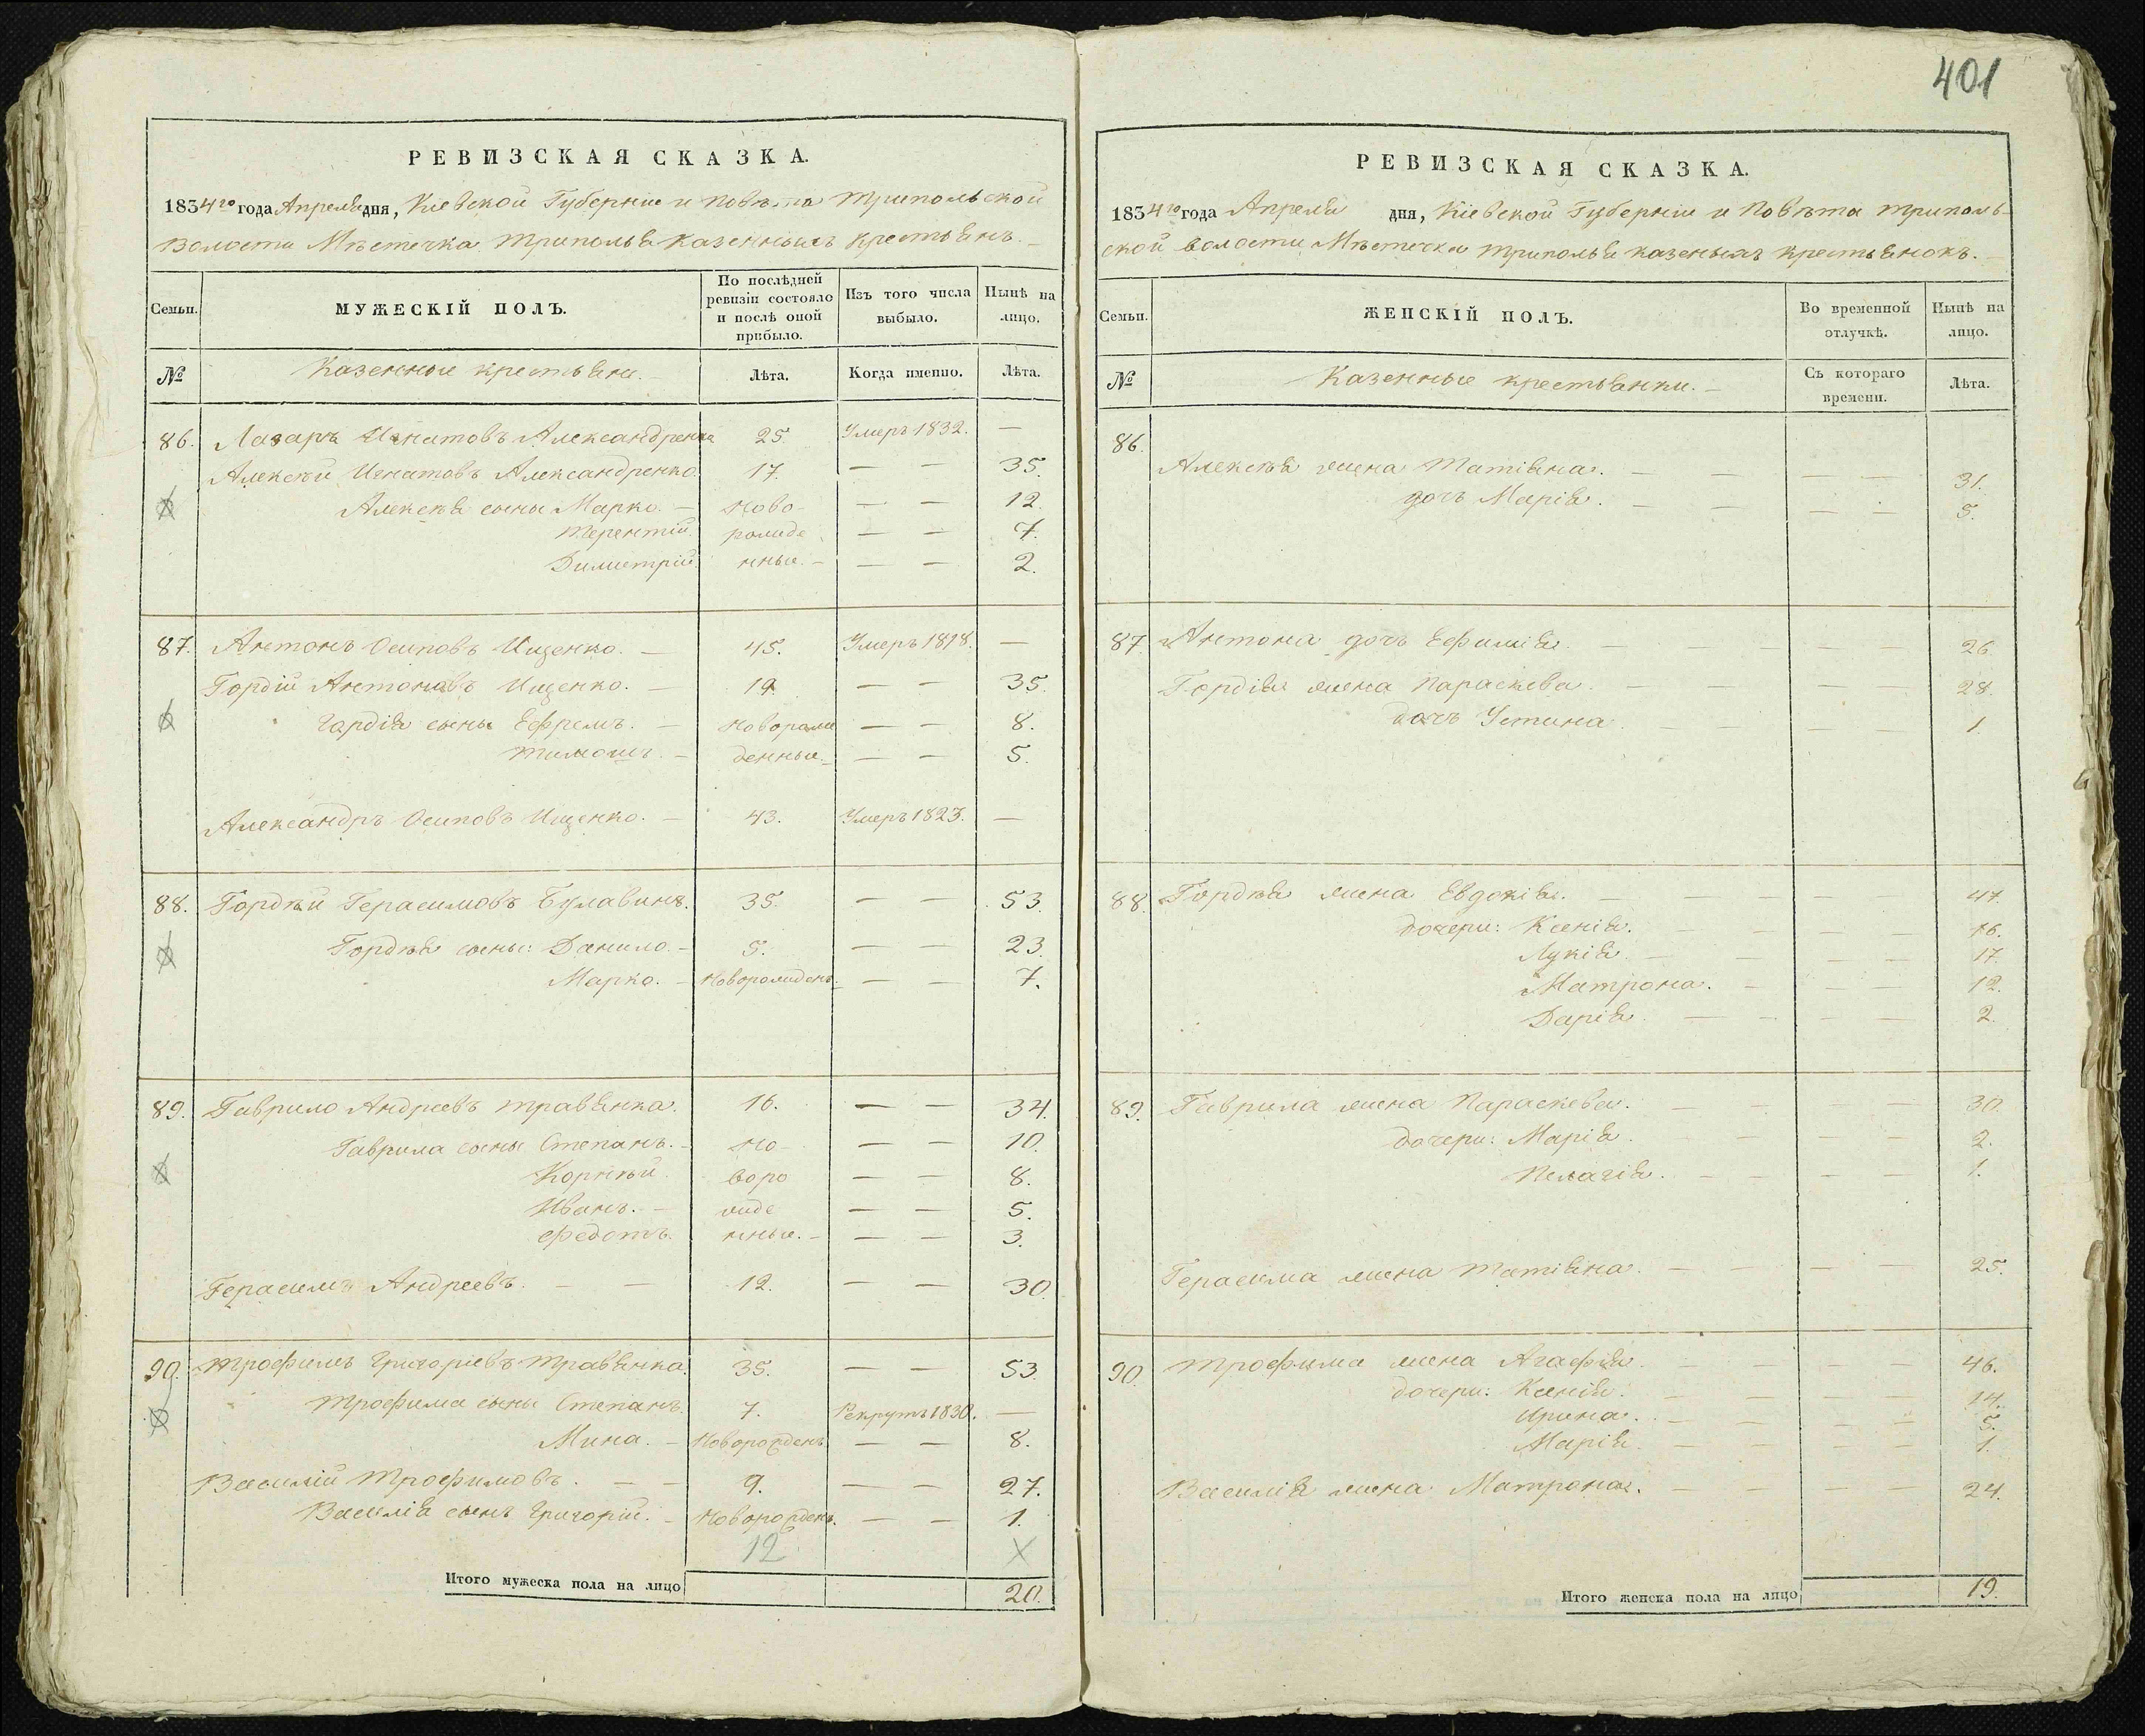 401
РЕВИЗСКАЯ СКАЗКА.
1834го года Апреля дня, Кіевской Губерніи и Повѣта Трипольской
Волости Мѣстечка Триполья казенныхъ крестьянъ.
Семьи. МУЖЕСКІЙ ПОЛЪ. По послѣдней ревизіи состояло и послѣ оной прибыло. Изъ того числа выбыло. Нынѣ на лицо.
№ Казенные крестьяне. Лѣта. Когда именно. Лѣта.
86. Лазарь Игнатовъ Александренко 25. Умеръ 1832. —
Алексѣй Игнатовъ Александренко. 17. — — 35.
Алексѣя сыны Марко. — Ново- — — 12.
Терентій. рожде — — 7.
Димитрій. нные. — — — 2.
87. Антонъ Осиповъ Ищенко. — 45. Умеръ 1818. —
Гордій Антоновъ Ищенко. — 19. — — 35.
Гордія сыны Ефремъ. — Новорож — — 8.
Тимошъ. — денные. — — 5.
Александръ Осиповъ Ищенко. — 43. Умеръ 1823. —
88. Гордѣй Герасимовъ Булавинъ. 35. — — 53.
Гордѣя сыны: Данило. — 5. — — 23.
Марко. — Новорожденъ. — — 7.
89. Гаврило Андреевъ Травянка. 16. — — 34.
Гаврила сыны Степанъ. — Но — — 10.
Корнѣй. воро — — 8.
Иванъ. — жде — — 5.
Федотъ. нные. — — — 3.
Герасимъ Андреевъ. — — 12. — — 30.
90. Трофимъ Григоріевъ Травянка. 35. — — 53.
Трофима сыны Степанъ. 7. Рекрутъ 1830. —
Мина. — Новорожденъ — — 8.
Василій Трофимовъ. — — 9. — — 27.
Василія сынъ Григорій. — Новорожденъ. — — 1.
12 X
Итого мужеска пола на лицо 20.
РЕВИЗСКАЯ СКАЗКА.
1834го года Апреля дня, Кіевской Губерніи и Повѣта Триполь-
ской волости Мѣстечка Триполья казеныхъ крестьянокъ.
Семьи. ЖЕНСКІЙ ПОЛЪ. Во временной отлучкѣ. Нынѣ на лицо.
№ Казенные крестьянки. — Съ котораго времени. Лѣта.
86.
Алексѣя жена Татіяна. — — — — 31.
дочь Марія. — — — — 5.
87. Антона дочь Ефимія. — — — — — 26.
Гордія жена Параскева. — — — — 28.
дочь Устина. — — — — 1.
88. Гордѣя жена Евдокія. — — — — — 47.
дочери: Ксенія. — — — — 16.
Лукія. — — — — 17.
Матрона. — — — 12.
Дарія. — — — — 2.
89. Гаврила жена Параскева. — — — — 30.
дочери: Марія. — — — — 2.
Пелагія. — — — — 1.
Герасима жена Татіяна. — — — — 25.
90. Трофима жена Агафія. — — — — 46.
дочери: Ксенія. — — — — 14.
Ирина. — — — — 5.
Марія. — — — — 1.
Василія жена Матрона. — — — — 24.
Итого женска пола на лицо 19.